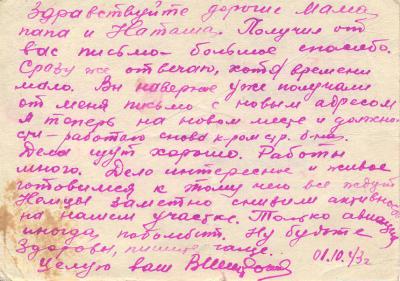 Здравствуйте дорогие Мама
папа и Наташа. Получил от
вас письмо - большое спасибо.
Сразу же отвечаю, хотя времени
мало. Вы наверное уже получили
от меня письмо с новым адресом
Я теперь на новом месте и должно-
сти - работаю снова к-ром стр. б-на.
Дела идут хорошо. Работы
много. Дело интересное и живое
готовимся к тому чего все ждут
Немцы заметно снизили активность
на нашем участке. Только авиация
иногда побомбит. Ну будьте
здоровы, пишите чаще.
Целую ваш
01.10.43г